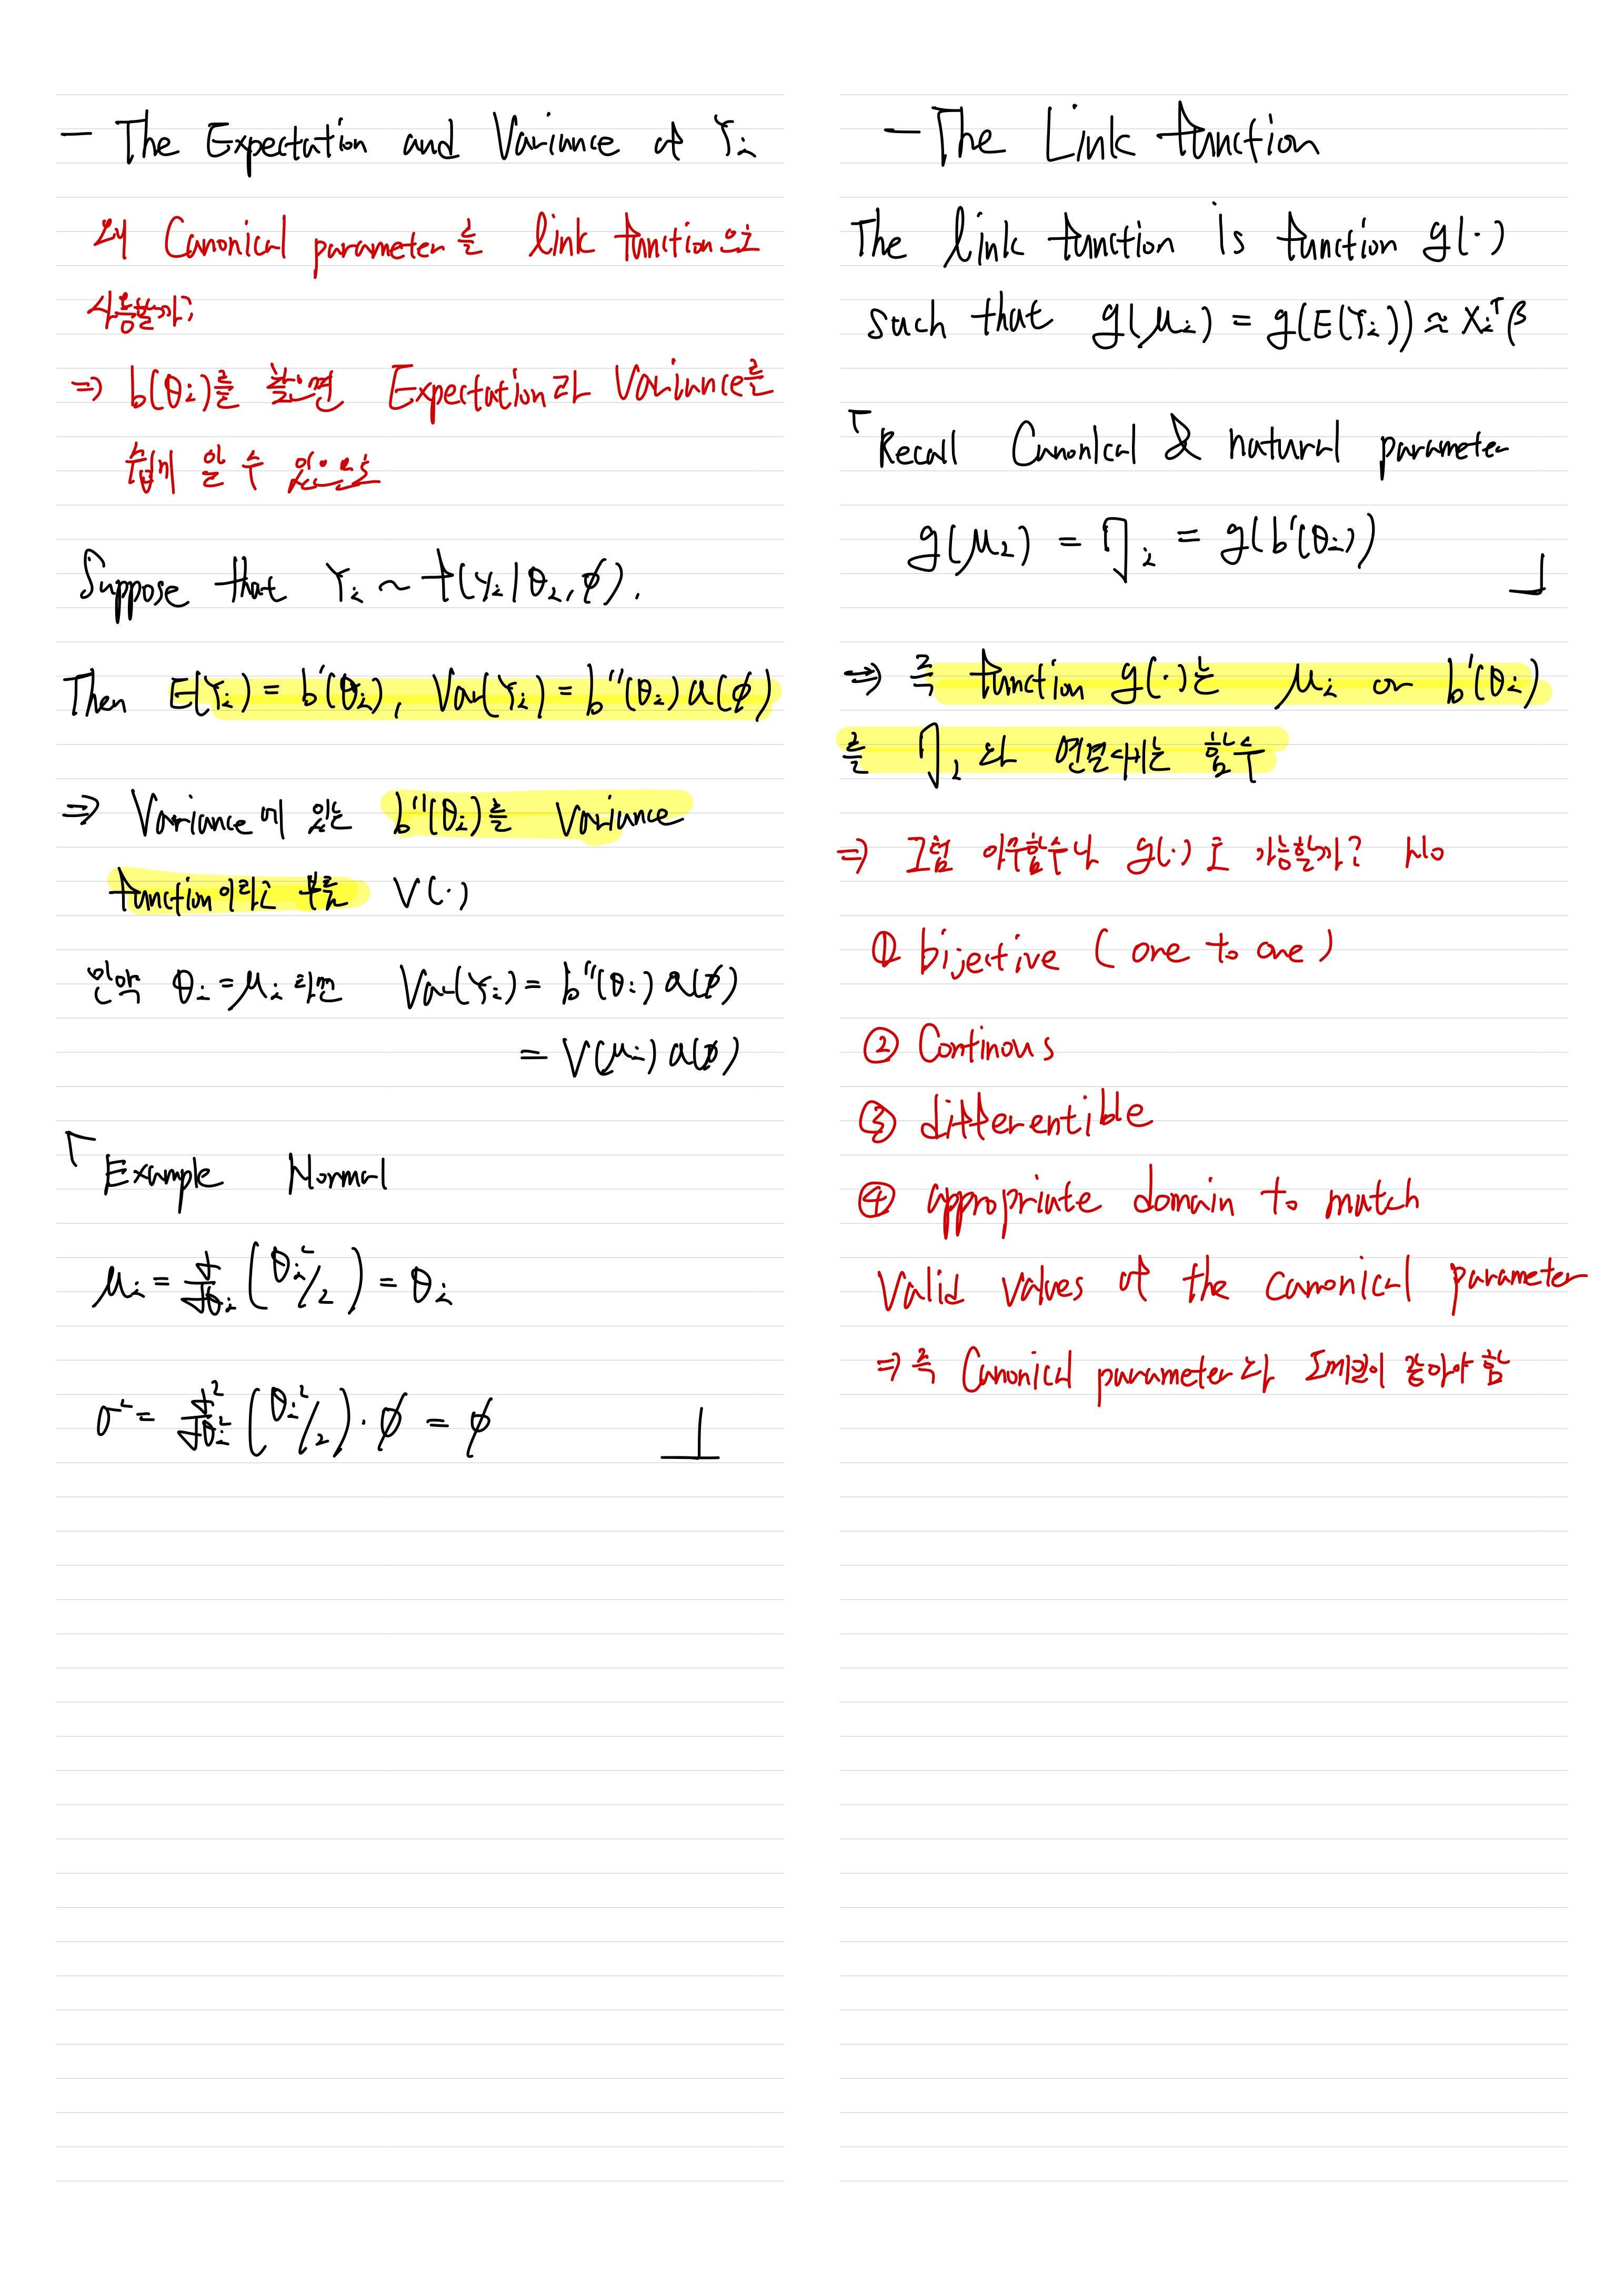 - The Expectation and Variance of Yᵢ
왜 Canonical parameter를 link function으로
사용할까?
⇒ b(θᵢ)를 찾으면 Expectation과 Variance를
쉽게 알 수 있으므로
Suppose that Yᵢ ~ f(yᵢ|θᵢ, φ).
Then E(Yᵢ) = b'(θᵢ), Var(Yᵢ) = b''(θᵢ) a(φ)
⇒ Variance에 있는 b''(θᵢ)를 Variance
function이라고 부름 V(·)
만약 θᵢ = μᵢ라면 Var(Yᵢ) = b''(θᵢ) a(φ)
= V(μᵢ) a(φ)
「Example Normal
μᵢ = d/dθᵢ (θᵢ²/2) = θᵢ
σ² = d²/dθᵢ² (θᵢ²/2) · φ = φ 」
- The Link function
The link function is function g(·)
such that g(μᵢ) = g(E(Yᵢ)) ≈ Xᵢᵀβ
「Recall Canonical & natural parameter
g(μᵢ) = ηᵢ = g(b'(θᵢ)) 」
⇒ 즉 function g(·)는 μᵢ or b'(θᵢ)
를 ηᵢ와 연결시키는 함수
⇒ 그럼 아무함수나 g(·)로 가능할까? No
① bijective (one to one)
② Continous
③ differentible
④ appropriate domain to match
Valid values of the canonical parameter
⇒ 즉 Canonical parameter과 도메인이 같아야 함